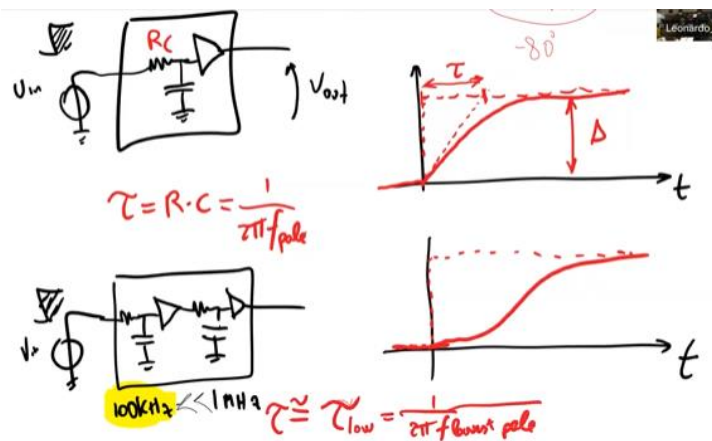 -80°
Leonardo
RC
Vin
Vout
τ
Δ
t
τ = R·C = 1/2πfpole
V+
100kHz << 1MHz
τ ≅ τlow = 1/2πf lowest pole
t